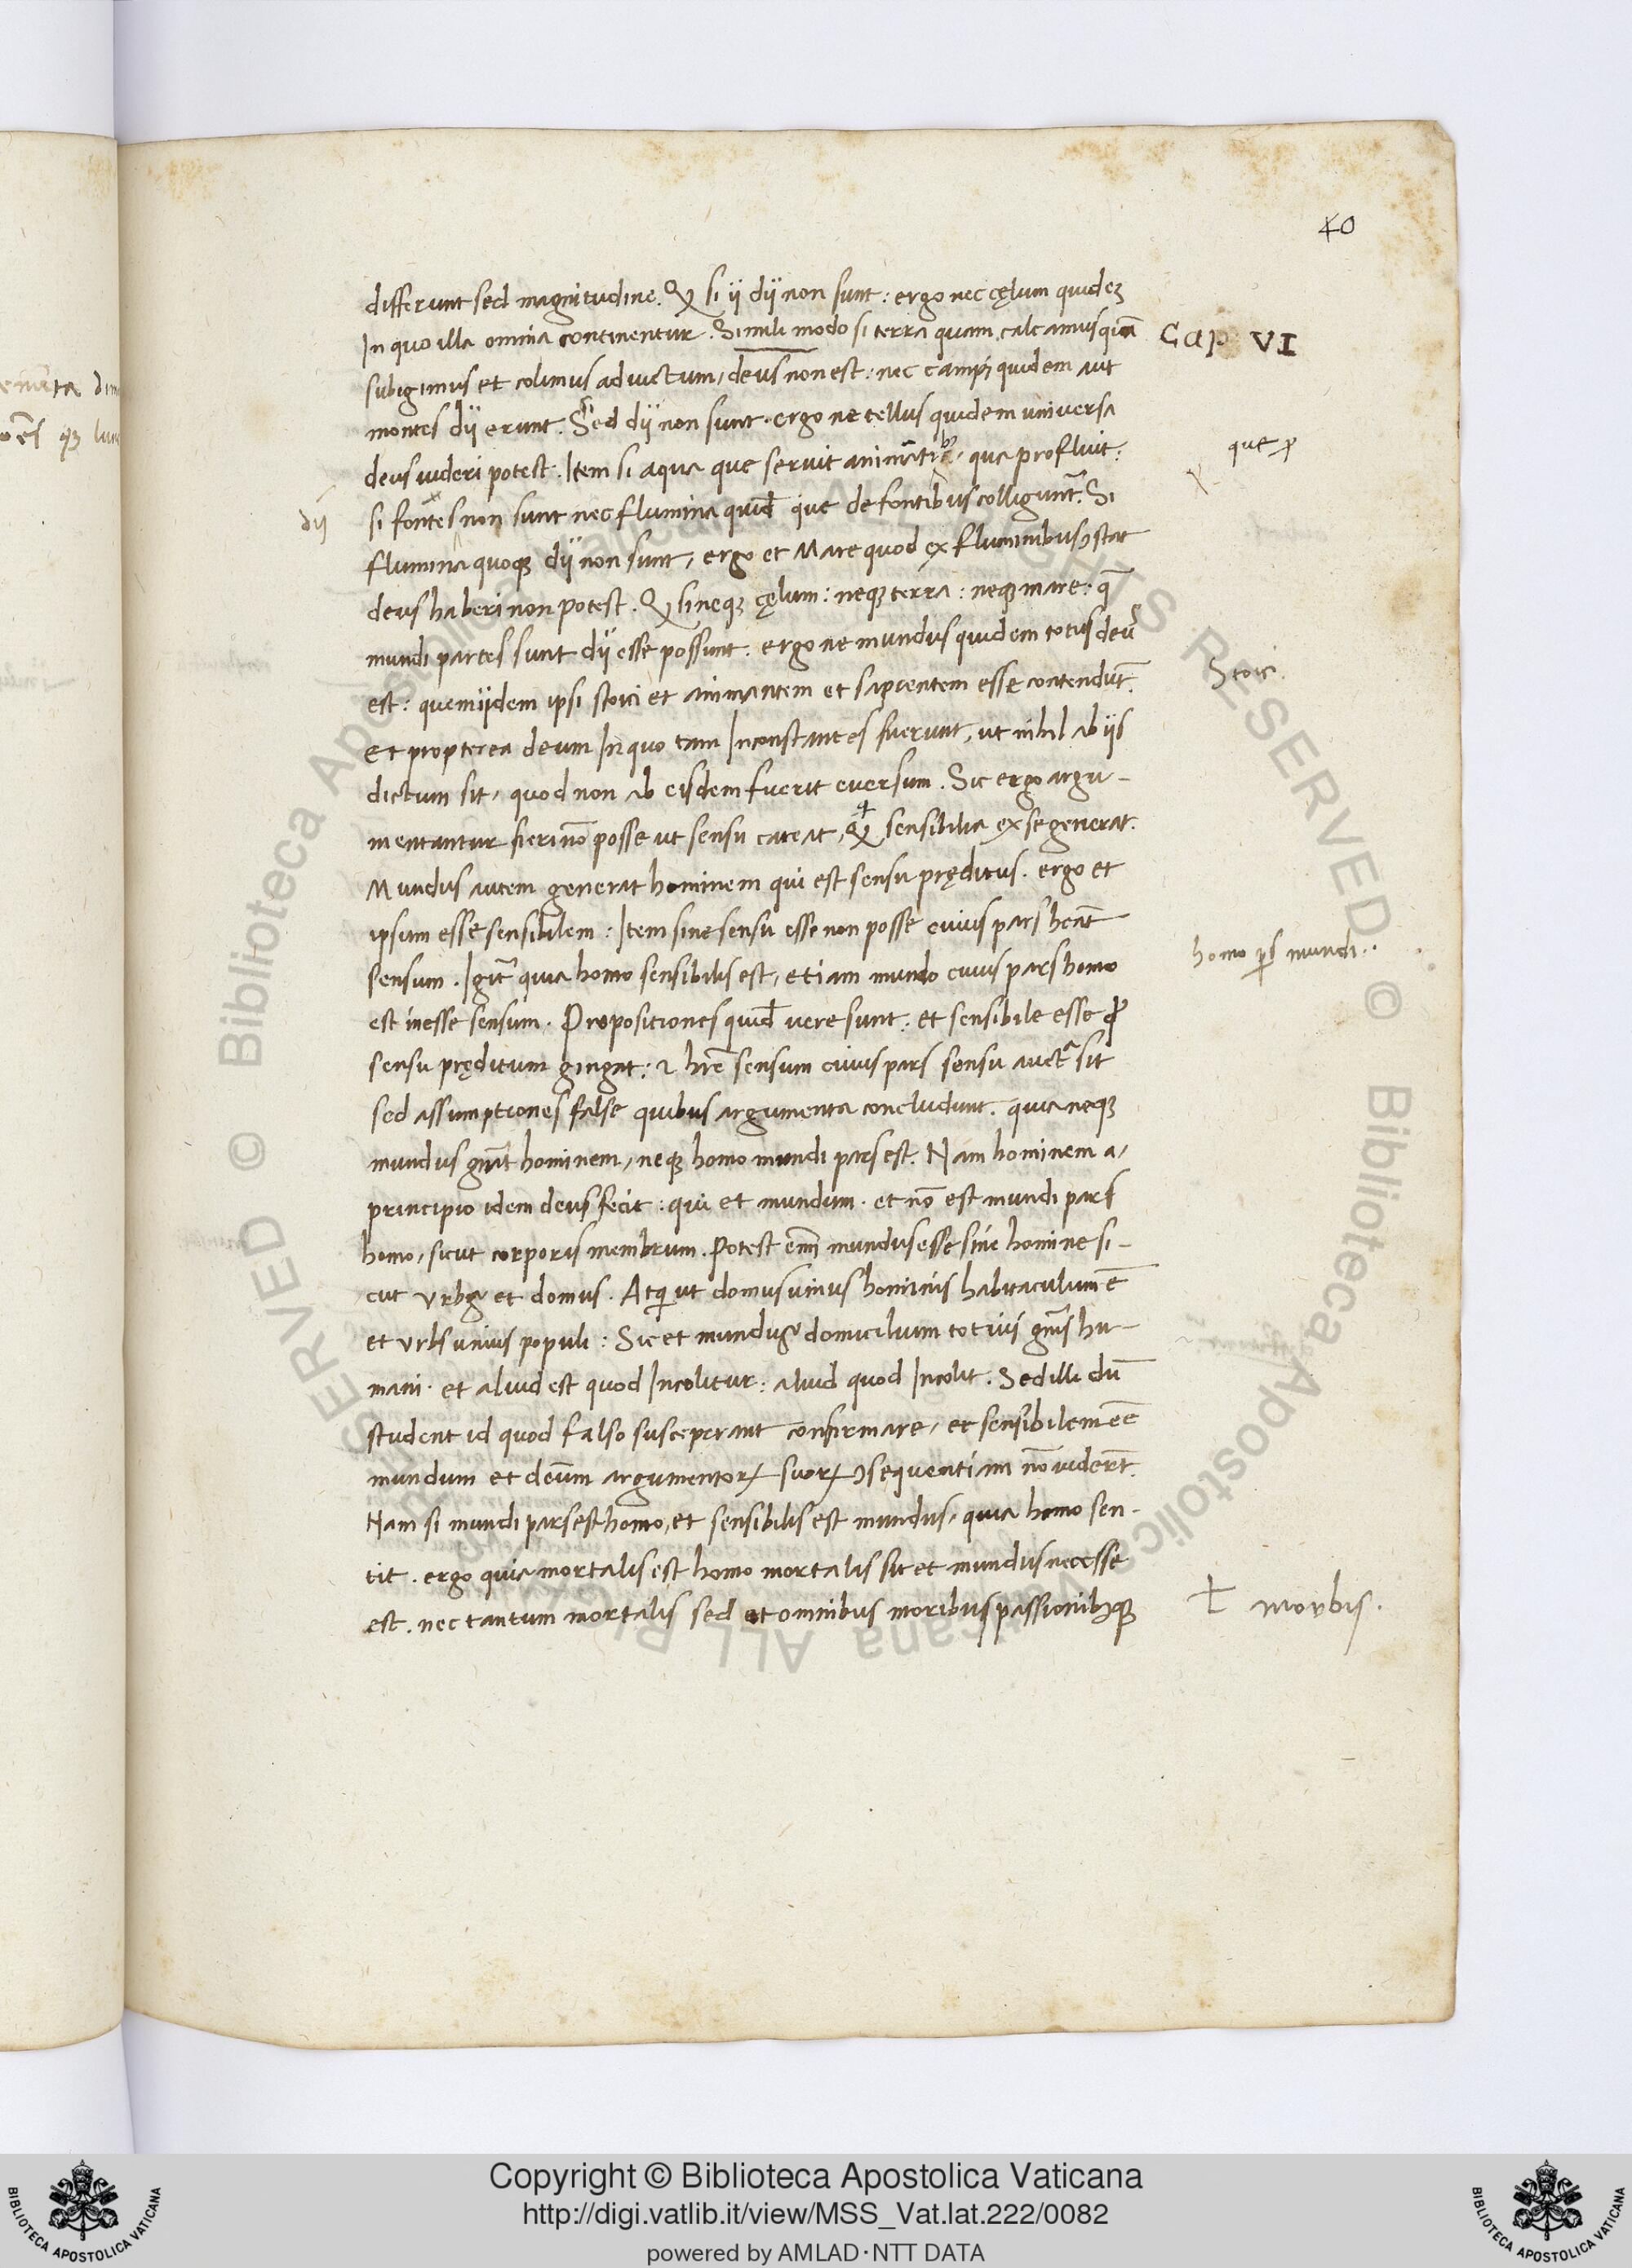 40
differunt sed magnitudine. Ꝙ si ii dii non sunt: ergo nec cęlum quideʒ
In quo illa omnia continentur. Simili modo si terra quam calcamus quā
Cap VI
subigimus et colimus ad uictum, deus non est: nec campi quidem aut
montes dii erunt. Sed dii non sunt. ergo ne tellus quidem uniuersa
deus uideri potest. Item si aqua que seruit animātibꝰ, qua profluit:
que ꝓ
dii
si fontes non sunt nec flumina quid̄ que de fontibus colligunt̄. Si
flumina quoqꝫ dii non sunt, ergo et Mare quod ex fluminibus ꝯstat
deus haberi non potest. Ꝙ si neqꝫ cęlum: neqꝫ terra: neqꝫ mare: q̄
mundi partes sunt dii esse possunt: ergo ne mundus quidem totus deus
est: quem iidem ipsi stoici et animantem et sapientem esse contendūt.
Stoic.
et propterea deum In quo tam Inconstantes fuerunt, ut nihil ab iis
dictum sit, quod non ab eisdem fuerit euersum. Sic ergo argu-
mentantur fieri nō posse ut sensu careat, ꝙ sensibilia ex se generat.
Mundus autem generat hominem qui est sensu pręditus. ergo et
ipsum esse sensibilem: Item sine sensu esse non posse cuius pars heāt
sensum. Igit̄ quia homo sensibilis est, etiam mundo cuius pars homo
homo ps mundi..
est inesse sensum. Propositiones quid̄ uere sunt: et sensibile esse ꝙ
sensu pręditum gingat: et hr̄e sensum cuius pars sensu auctꝰ sit
sed assumptiones false quibus argumenta concludunt. quia neqꝫ
mundus gn̄at hominem, neqꝫ homo mundi pars est. Nam hominem a,
principio idem deus fecit: qui et mundum. et nō est mundi pars
homo, sicut corporis membrum. Potest em̄ mundus esse sine homine si-
cut urbs et domus. Atqui ut domus unius hominis habitaculum ē
et urbs unius populi: Sic et mundus domicilium totius gn̄is hu-
mani. et aliud est quod Incolitur: aliud quod Incolit. Sed illi dū
student id quod falso susceperant confirmare, et sensibilem eē
mundum et deum argumentoꝝ suoꝝ ꝯsequentiam nō uidert̄.
Nam si mundi pars est homo, et sensibilis est mundus, quia homo sen-
tit. ergo quia mortalis est homo mortalis sit et mundus necesse
est. nec tantum mortalis sed et omnibus moribus passionibꝫqꝫ
morbis.
Copyright © Biblioteca Apostolica Vaticana
http://digi.vatlib.it/view/MSS_Vat.lat.222/0082
powered by AMLAD·NTT DATA